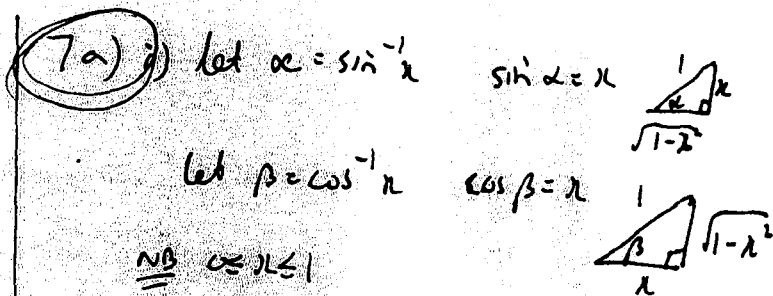 7a) i) let α = sin⁻¹x   sin α = x   1   x   α   √1-x²
let β = cos⁻¹x   cos β = x   1   √1-x²   β   x
NB 0≤x≤1